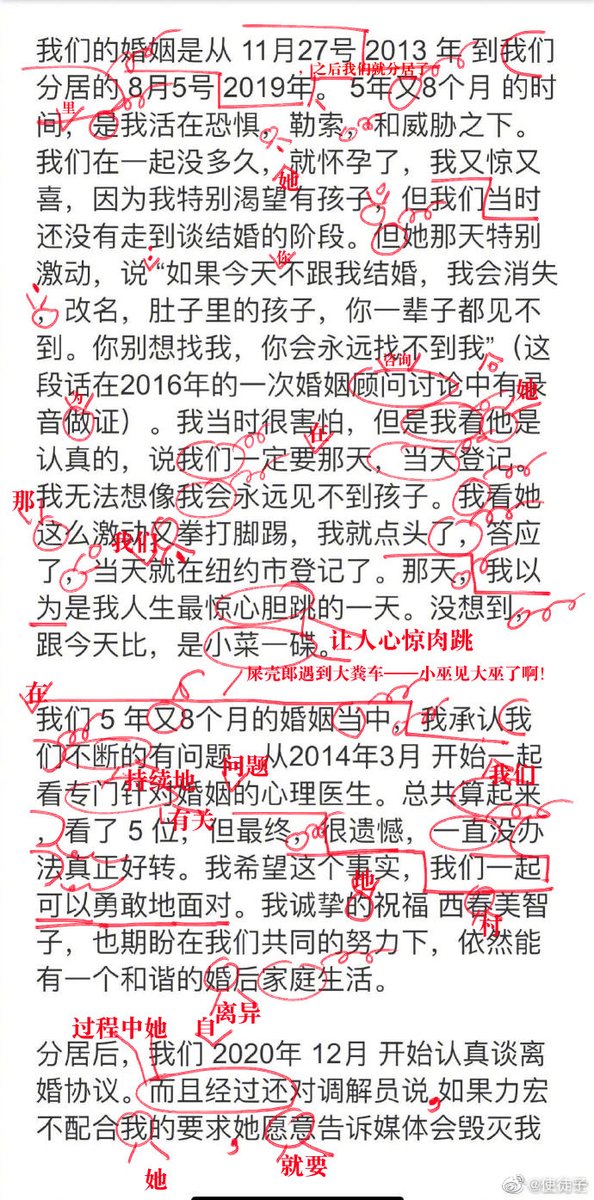 我们的婚姻是从 11月27号 2013 年 到我们
，之后我们就分居了
分居的 8月5号 2019年。 5年又8个月 的时
里
间，是我活在恐惧，勒索， 和威胁之下。
我们在一起没多久，就怀孕了，我又惊又
她
喜，因为我特别渴望有孩子，但我们当时
还没有走到谈结婚的阶段。但她那天特别
你
激动，说 “如果今天不跟我结婚，我会消失
，改名，肚子里的孩子，你一辈子都见不
到。你别想找我，你会永远找不到我”（这
咨询
段话在2016年的一次婚姻顾问讨论中有录
为
她
音做证）。我当时很害怕，但是我看他是
在
认真的，说我们一定要那天，当天登记。
我无法想像我会永远见不到孩子。我看她
那
这么激动又拳打脚踢，我就点头了，答应
我们
了，当天就在纽约市登记了。那天，我以
为是我人生最惊心胆跳的一天。没想到，
跟今天比，是小菜一碟。
让人心惊肉跳
屎壳郎遇到大粪车——小巫见大巫了啊!
在
我们 5 年又8个月的婚姻当中，我承认我
们不断的有问题，从2014年3月 开始一起
持续地
问题
我们
看专门针对婚姻的心理医生。总共算起来
有关
，看了 5 位，但最终，很遗憾，一直没办
法真正好转。我希望这个事实，我们一起
地
可以勇敢地面对。我诚挚的祝福 西春美智
村
子，也期盼在我们共同的努力下，依然能
有一个和谐的婚后家庭生活。
离异
过程中她
自
分居后，我们 2020年 12月 开始认真谈离
婚协议。而且经过还对调解员说,如果力宏
不配合我的要求,她愿意告诉媒体会毁灭我
她
就要
@使徒子